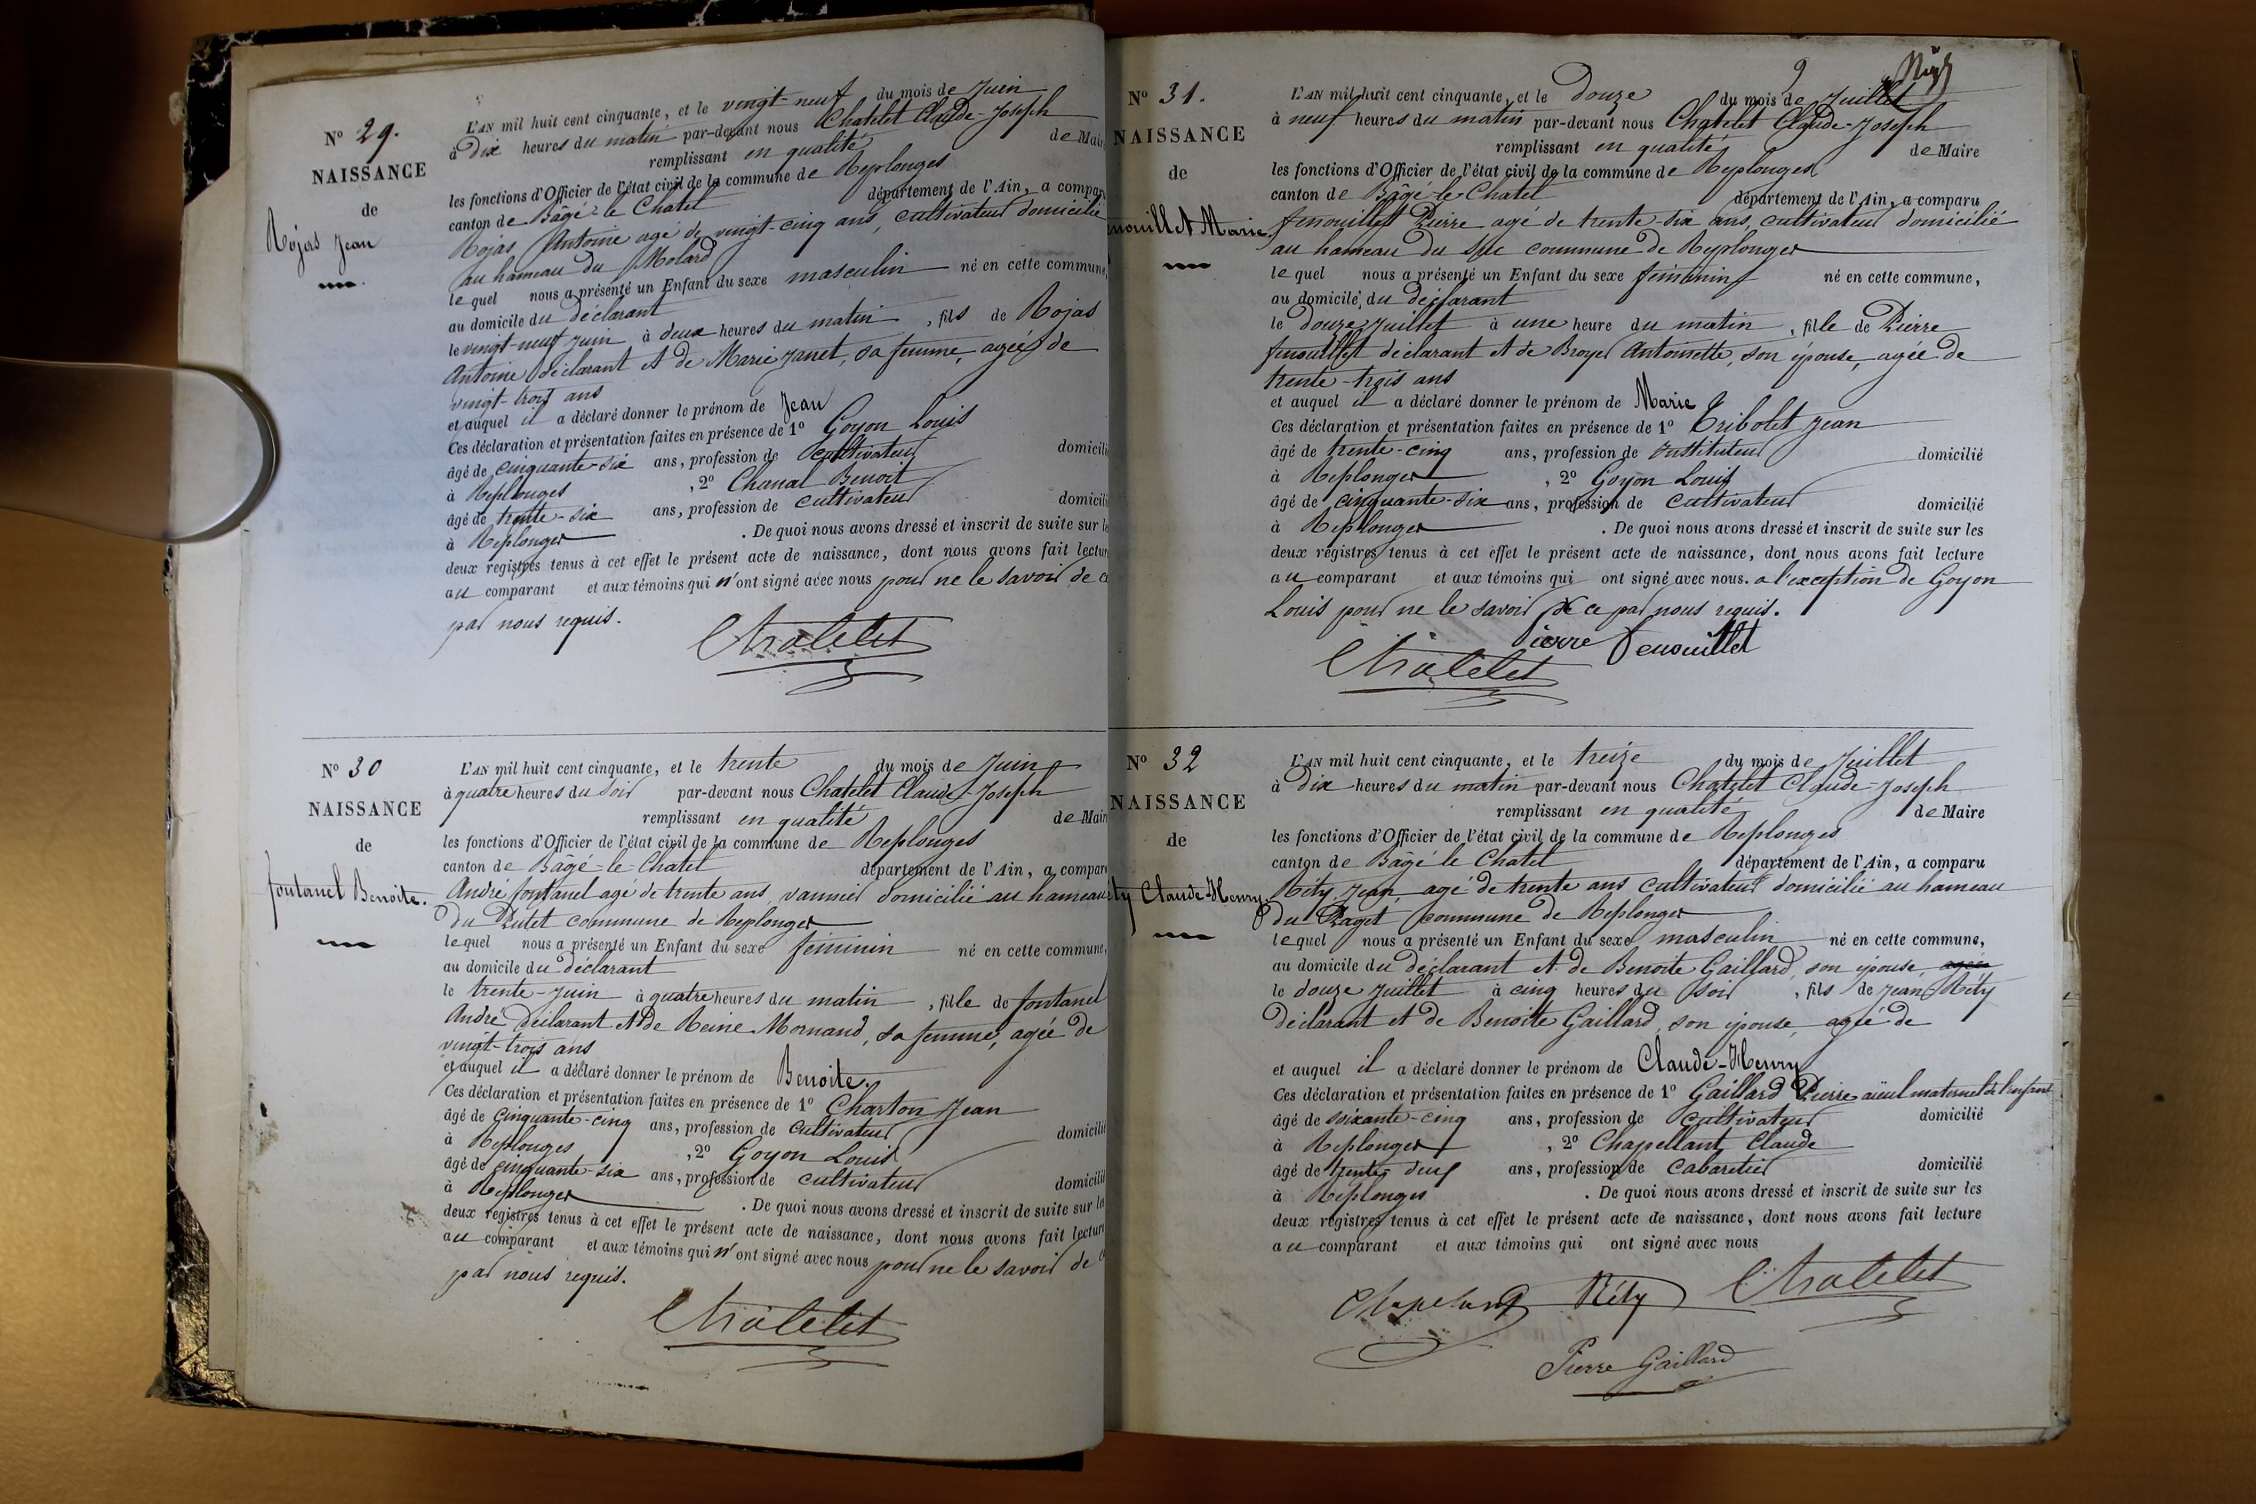 N° 29.
NAISSANCE
de
Rojas Jean
L'AN mil huit cent cinquante, et le vingt-neuf du mois de Juin
à dix heures du matin par-devant nous Chatelet Claude-Joseph
remplissant en qualité de Mair
les fonctions d'Officier de l'état civil de la commune de Replonges
canton de Bâgé-le-Chatel département de l'Ain, a compar
Rojas Antoine agé de vingt-cinq ans, cultivateur domicilié
au hameau du Molard
lequel nous a présenté un Enfant du sexe masculin né en cette commune,
au domicile du déclarant
le vingt-neuf juin à deux heures du matin, fils de Rojas
Antoine déclarant et de Marie Janet, sa femme, agée de
vingt-trois ans
et auquel il a déclaré donner le prénom de Jean
Ces déclaration et présentation faites en présence de 1° Goyon Louis
âgé de cinquante-six ans, profession de cultivateur domicili
à Replonges, 2° Chanal Benoit
âgé de trente-six ans, profession de cultivateur domicili
à Replonges. De quoi nous avons dressé et inscrit de suite sur le
deux registres tenus à cet effet le présent acte de naissance, dont nous avons fait lectur
au comparant et aux témoins qui n'ont signé avec nous pour ne le savoir de c
par nous requis.
Chatelet
N° 30
NAISSANCE
de
fontanel Benoite.
L'AN mil huit cent cinquante, et le trente du mois de Juin
à quatre heures du soir par-devant nous Chatelet Claude-Joseph
remplissant en qualité de Mair
les fonctions d'Officier de l'état civil de la commune de Replonges
canton de Bâgé-le-Chatel département de l'Ain, a compar
André fontanel agé de trente ans, vannier domicilié au hameau
du Putet commune de Replonges
lequel nous a présenté un Enfant du sexe féminin né en cette commune,
au domicile du déclarant
le trente-juin à quatre heures du matin, fille de fontanel
André déclarant et de Reine Mornand, sa femme, agée de
vingt-trois ans
et auquel il a déclaré donner le prénom de Benoite.
Ces déclaration et présentation faites en présence de 1° Charton Jean
âgé de cinquante-cinq ans, profession de cultivateur domicilié
à Replonges, 2° Goyon Louis
âgé de cinquante-six ans, profession de cultivateur domicilié
à Replonges. De quoi nous avons dressé et inscrit de suite sur les
deux registres tenus à cet effet le présent acte de naissance, dont nous avons fait lecture
au comparant et aux témoins qui n'ont signé avec nous pour ne le savoir de c
par nous requis.
Chatelet
9
N° 31.
NAISSANCE
de
nouillet Marie
L'AN mil huit cent cinquante, et le douze du mois de Juillet
à neuf heures du matin par-devant nous Chatelet Claude-Joseph
remplissant en qualité de Maire
les fonctions d'Officier de l'état civil de la commune de Replonges
canton de Bâgé-le-Chatel département de l'Ain, a comparu
fenouillet Pierre agé de trente-six ans, cultivateur domicilié
au hameau du commune de Replonges
lequel nous a présenté un Enfant du sexe féminin né en cette commune,
au domicile du déclarant
le douze juillet à une heure du matin, fille de Pierre
fenouillet déclarant et de Broyer Antoinette, son épouse, agée de
trente-trois ans
et auquel il a déclaré donner le prénom de Marie
Ces déclaration et présentation faites en présence de 1° Tribolet Jean
âgé de trente-cinq ans, profession de Instituteur domicilié
à Replonges, 2° Goyon Louis
âgé de cinquante-six ans, profession de cultivateur domicilié
à Replonges. De quoi nous avons dressé et inscrit de suite sur les
deux registres tenus à cet effet le présent acte de naissance, dont nous avons fait lecture
au comparant et aux témoins qui ont signé avec nous. a l'exception de Goyon
Louis pour ne le savoir de ce par nous requis.
Pierre Fenouillet
Chatelet
N° 32
NAISSANCE
de
ty Claude-Henry.
L'AN mil huit cent cinquante, et le treize du mois de Juillet
à dix heures du matin par-devant nous Chatelet Claude-Joseph
remplissant en qualité de Maire
les fonctions d'Officier de l'état civil de la commune de Replonges
canton de Bâgé le Chatel département de l'Ain, a comparu
Réty Jean, agé de trente ans cultivateur domicilié au hameau
du Paget commune de Replonges
lequel nous a présenté un Enfant du sexe masculin né en cette commune,
au domicile du déclarant et de Benoite Gaillard, son épouse, agée
le douze juillet à cinq heures du soir, fils de Jean Réty
déclarant et de Benoite Gaillard, son épouse, agée de
et auquel il a déclaré donner le prénom de Claude-Henry
Ces déclaration et présentation faites en présence de 1° Gaillard Pierre aïeul maternel de l'enfant
âgé de soixante-cinq ans, profession de cultivateur domicilié
à Replonges, 2° Chapellant Claude
âgé de trente deux ans, profession de Cabaretier domicilié
à Replonges. De quoi nous avons dressé et inscrit de suite sur les
deux registres tenus à cet effet le présent acte de naissance, dont nous avons fait lecture
au comparant et aux témoins qui ont signé avec nous
Chapelant Réty Chatelet
Pierre Gaillard